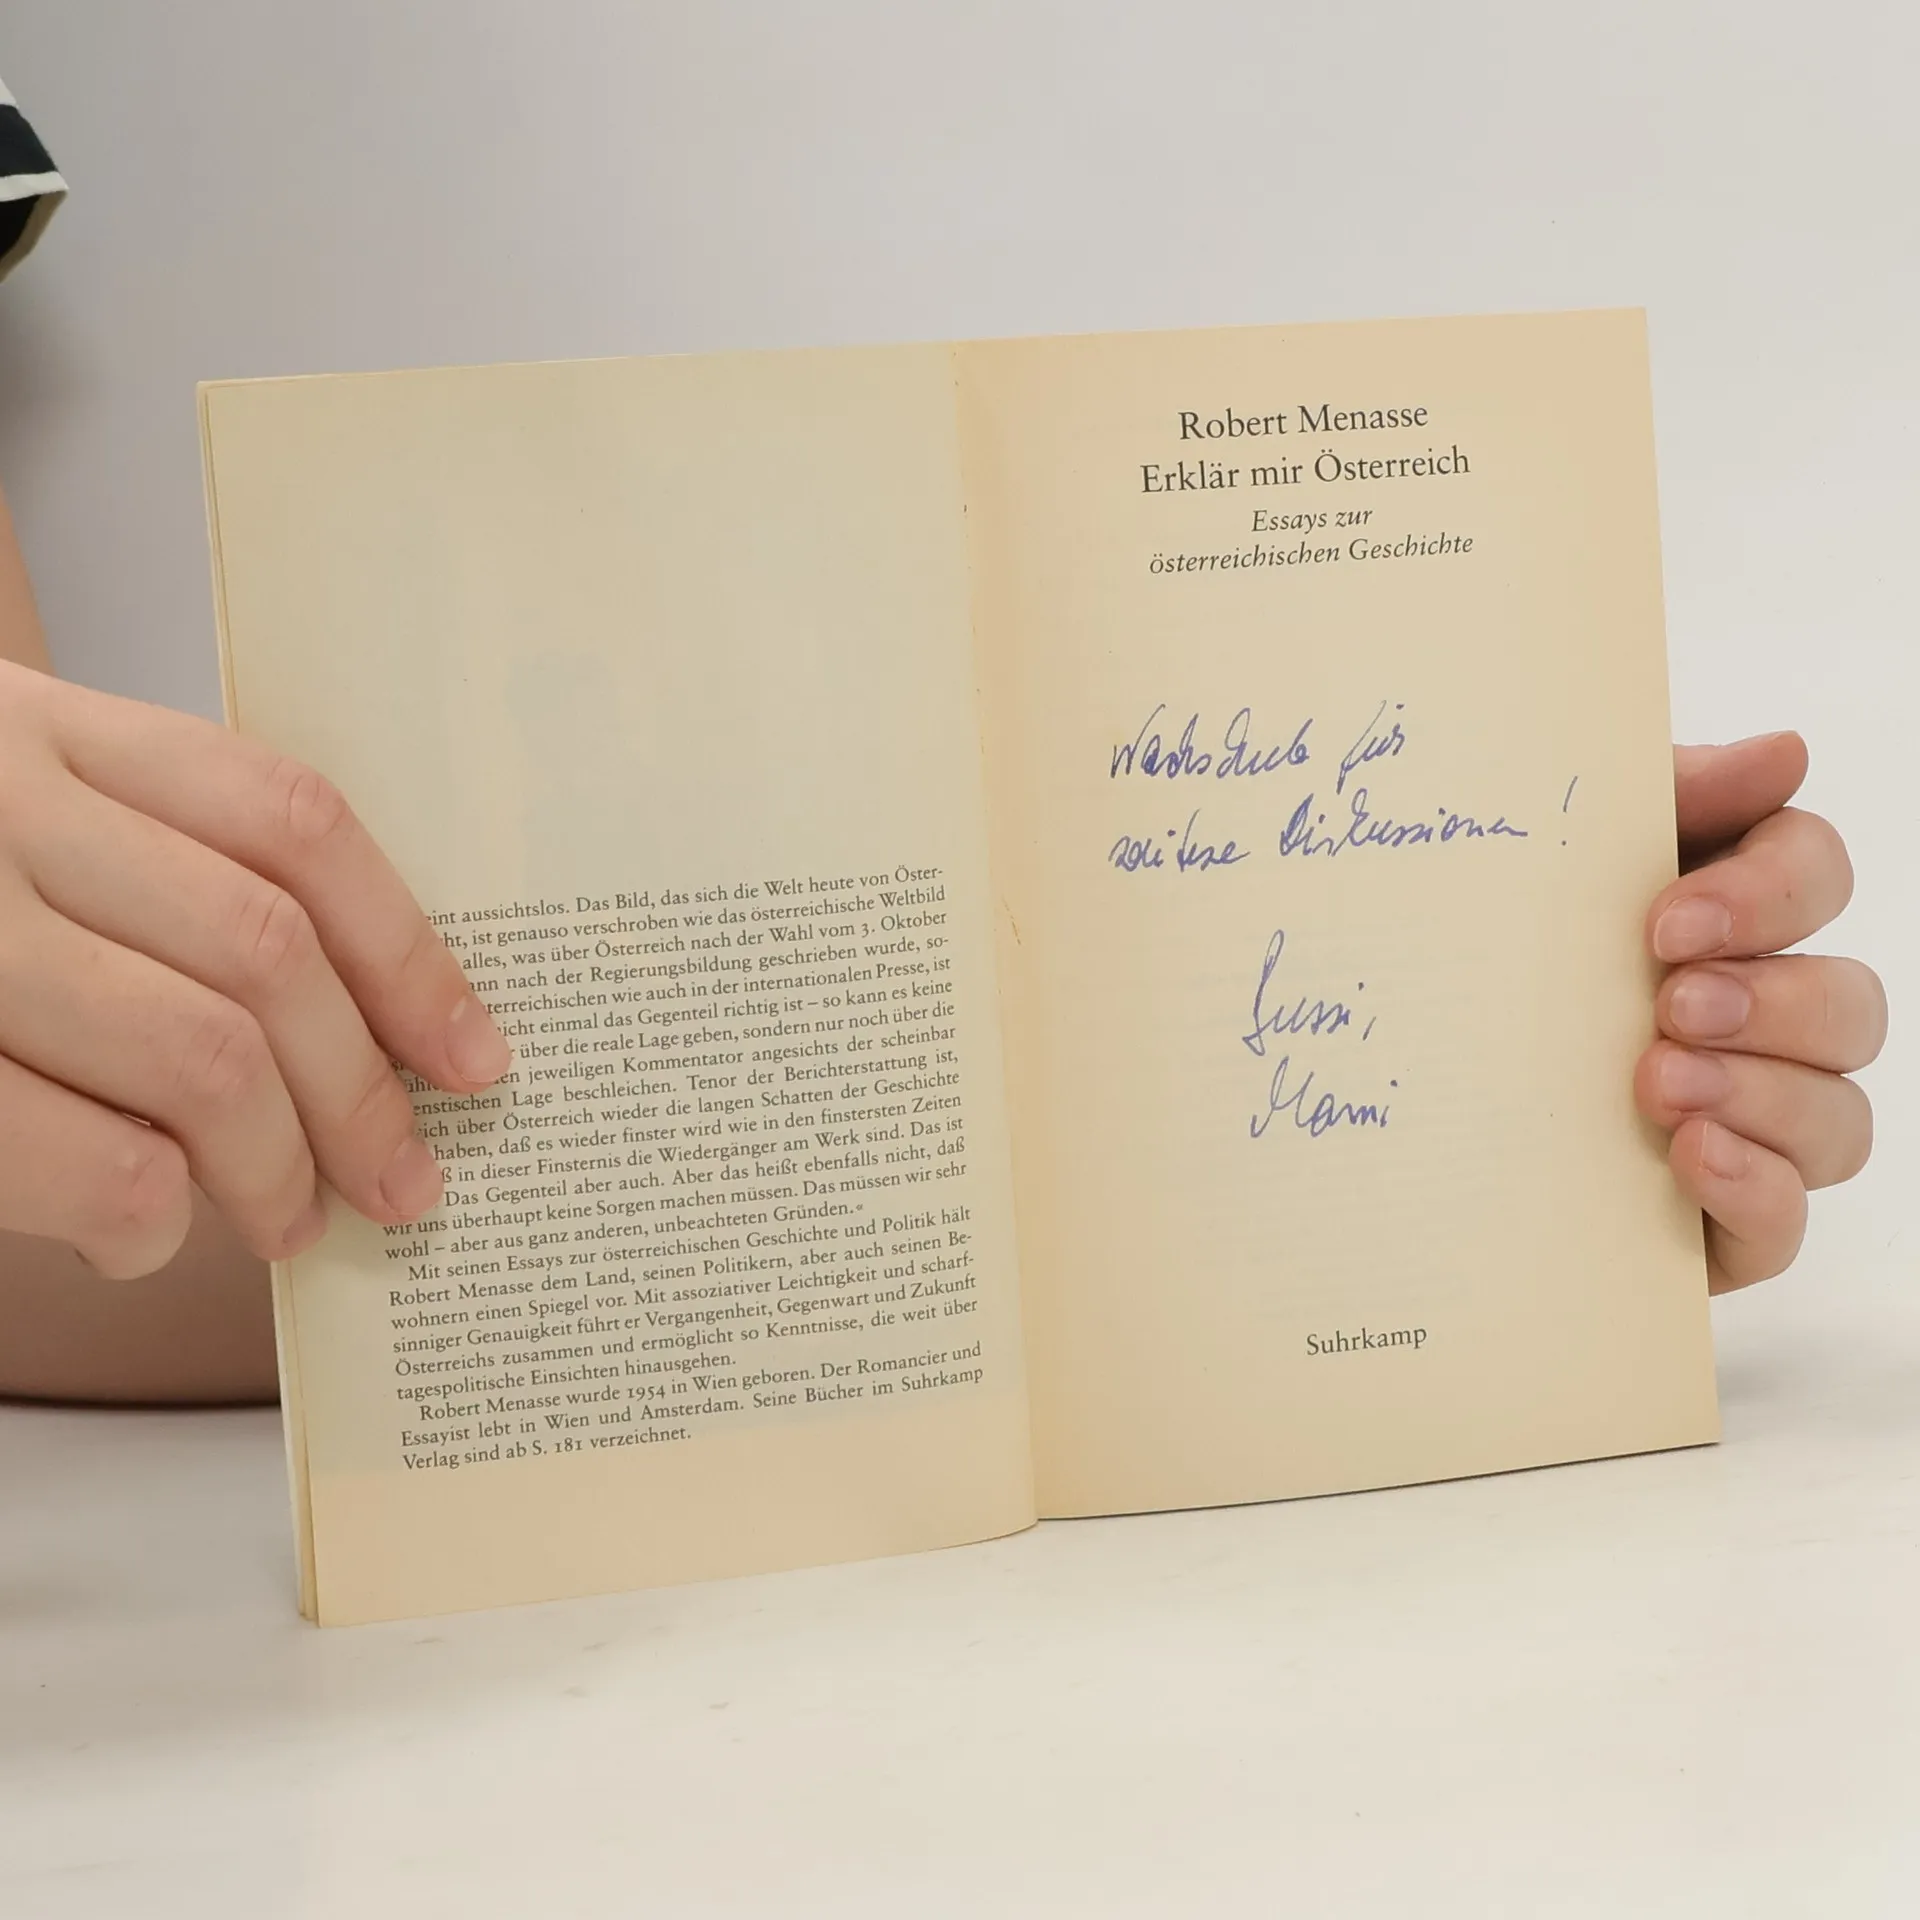 eint aussichtslos. Das Bild, das sich die Welt heute von Öster-
ht, ist genauso verschroben wie das österreichische Weltbild
alles, was über Österreich nach der Wahl vom 3. Oktober
ann nach der Regierungsbildung geschrieben wurde, so-
terreichischen wie auch in der internationalen Presse, ist
icht einmal das Gegenteil richtig ist – so kann es keine
über die reale Lage geben, sondern nur noch über die
en jeweiligen Kommentator angesichts der scheinbar
enstischen Lage beschleichen. Tenor der Berichterstattung ist,
ich über Österreich wieder die langen Schatten der Geschichte
haben, daß es wieder finster wird wie in den finstersten Zeiten
ß in dieser Finsternis die Wiedergänger am Werk sind. Das ist
Das Gegenteil aber auch. Aber das heißt ebenfalls nicht, daß
wir uns überhaupt keine Sorgen machen müssen. Das müssen wir sehr
wohl – aber aus ganz anderen, unbeachteten Gründen.«
Mit seinen Essays zur österreichischen Geschichte und Politik hält
Robert Menasse dem Land, seinen Politikern, aber auch seinen Be-
wohnern einen Spiegel vor. Mit assoziativer Leichtigkeit und scharf-
sinniger Genauigkeit führt er Vergangenheit, Gegenwart und Zukunft
Österreichs zusammen und ermöglicht so Kenntnisse, die weit über
tagespolitische Einsichten hinausgehen.
Robert Menasse wurde 1954 in Wien geboren. Der Romancier und
Essayist lebt in Wien und Amsterdam. Seine Bücher im Suhrkamp
Verlag sind ab S. 181 verzeichnet.
Robert Menasse
Erklär mir Österreich
Essays zur
österreichischen Geschichte
Nachschub für
weitere Diskussionen !
Bussi,
Mami
Suhrkamp